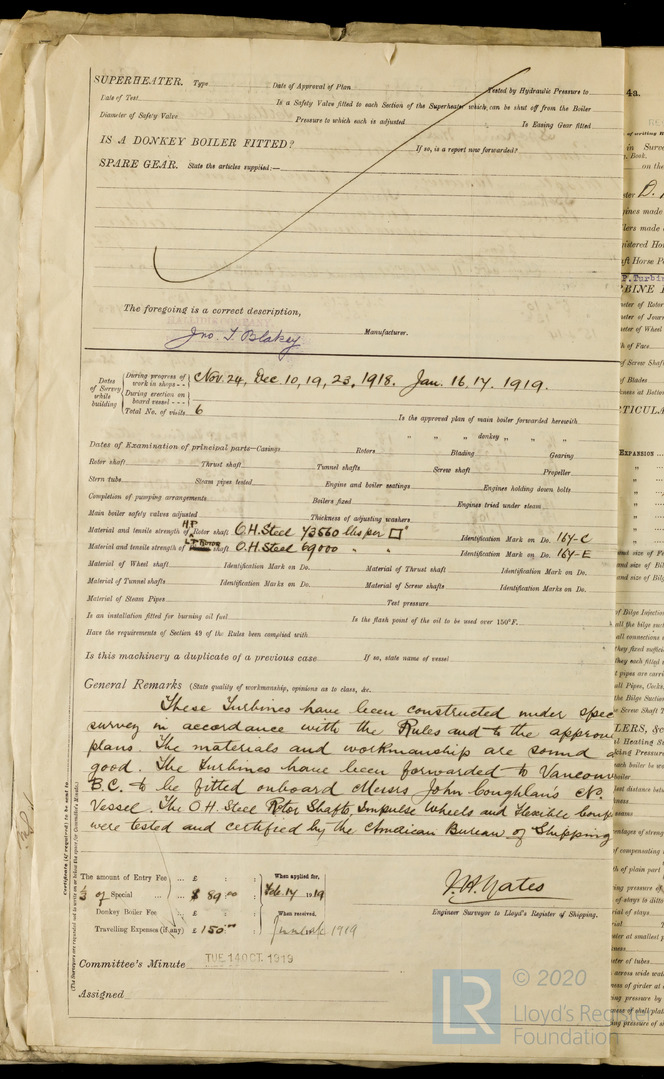 SUPERHEATER. Type Date of Approval of Plan Tested by Hydraulic Pressure to
Date of Test Is a Safety Valve fitted to each Section of the Superheater which can be shut off from the Boiler
Diameter of Safety Valve Pressure to which each is adjusted Is Easing Gear fitted
IS A DONKEY BOILER FITTED? If so, is a report now forwarded?
SPARE GEAR. State the articles supplied:—
The foregoing is a correct description,
Jno. T. Blakey Manufacturer.
Dates of Survey while building
During progress of work in shops - - Nov. 24, Dec. 10, 19, 23, 1918. Jan. 16. 17. 1919.
During erection on board vessel - - -
Total No. of visits 6
Is the approved plan of main boiler forwarded herewith
" " " donkey " " "
Dates of Examination of principal parts—Casings Rotors Blading Gearing
Rotor shaft Thrust shaft Tunnel shafts Screw shaft Propeller
Stern tube Steam pipes tested Engine and boiler seatings Engines holding down bolts
Completion of pumping arrangements Boilers fixed Engines tried under steam
Main boiler safety valves adjusted Thickness of adjusting washers
Material and tensile strength of H.P. Rotor shaft O.H. Steel 73560 lbs per □" Identification Mark on Do. 164-C
Material and tensile strength of L.P. Rotor shaft O.H. Steel 69000 " " Identification Mark on Do. 164-E
Material of Wheel shaft Identification Mark on Do. Material of Thrust shaft Identification Mark on Do.
Material of Tunnel shafts Identification Marks on Do. Material of Screw shafts Identification Marks on Do.
Material of Steam Pipes Test pressure
Is an installation fitted for burning oil fuel Is the flash point of the oil to be used over 150°F.
Have the requirements of Section 49 of the Rules been complied with
Is this machinery a duplicate of a previous case If so, state name of vessel
General Remarks (State quality of workmanship, opinions as to class, &c.
These Turbines have been constructed under spec
survey in accordance with the Rules and to the approve
plans. The materials and workmanship are sound a
good. The turbines have been forwarded to Vancouv
B.C. to be fitted onboard Messrs John Coughlan's No.
Vessel. The O.H. Steel Rotor Shafts, Impulse Wheels and Flexible Coup
were tested and certified by the American Bureau of Shipping
Certificate (if required) to be sent to
(The Surveyors are requested not to write on or below the space for Committee's Minute.)
The amount of Entry Fee ... £ : : When applied for,
⅓ of Special ... $ 89.00 : Feb. 14 1919
Donkey Boiler Fee ... £ : : When received,
Travelling Expenses (if any) £ 150.00 : 1919
J.H. Yates
Engineer Surveyor to Lloyd's Register of Shipping.
Committee's Minute TUE 14 OCT. 1919
Assigned
© 2020
LR Lloyd's Register
Foundation